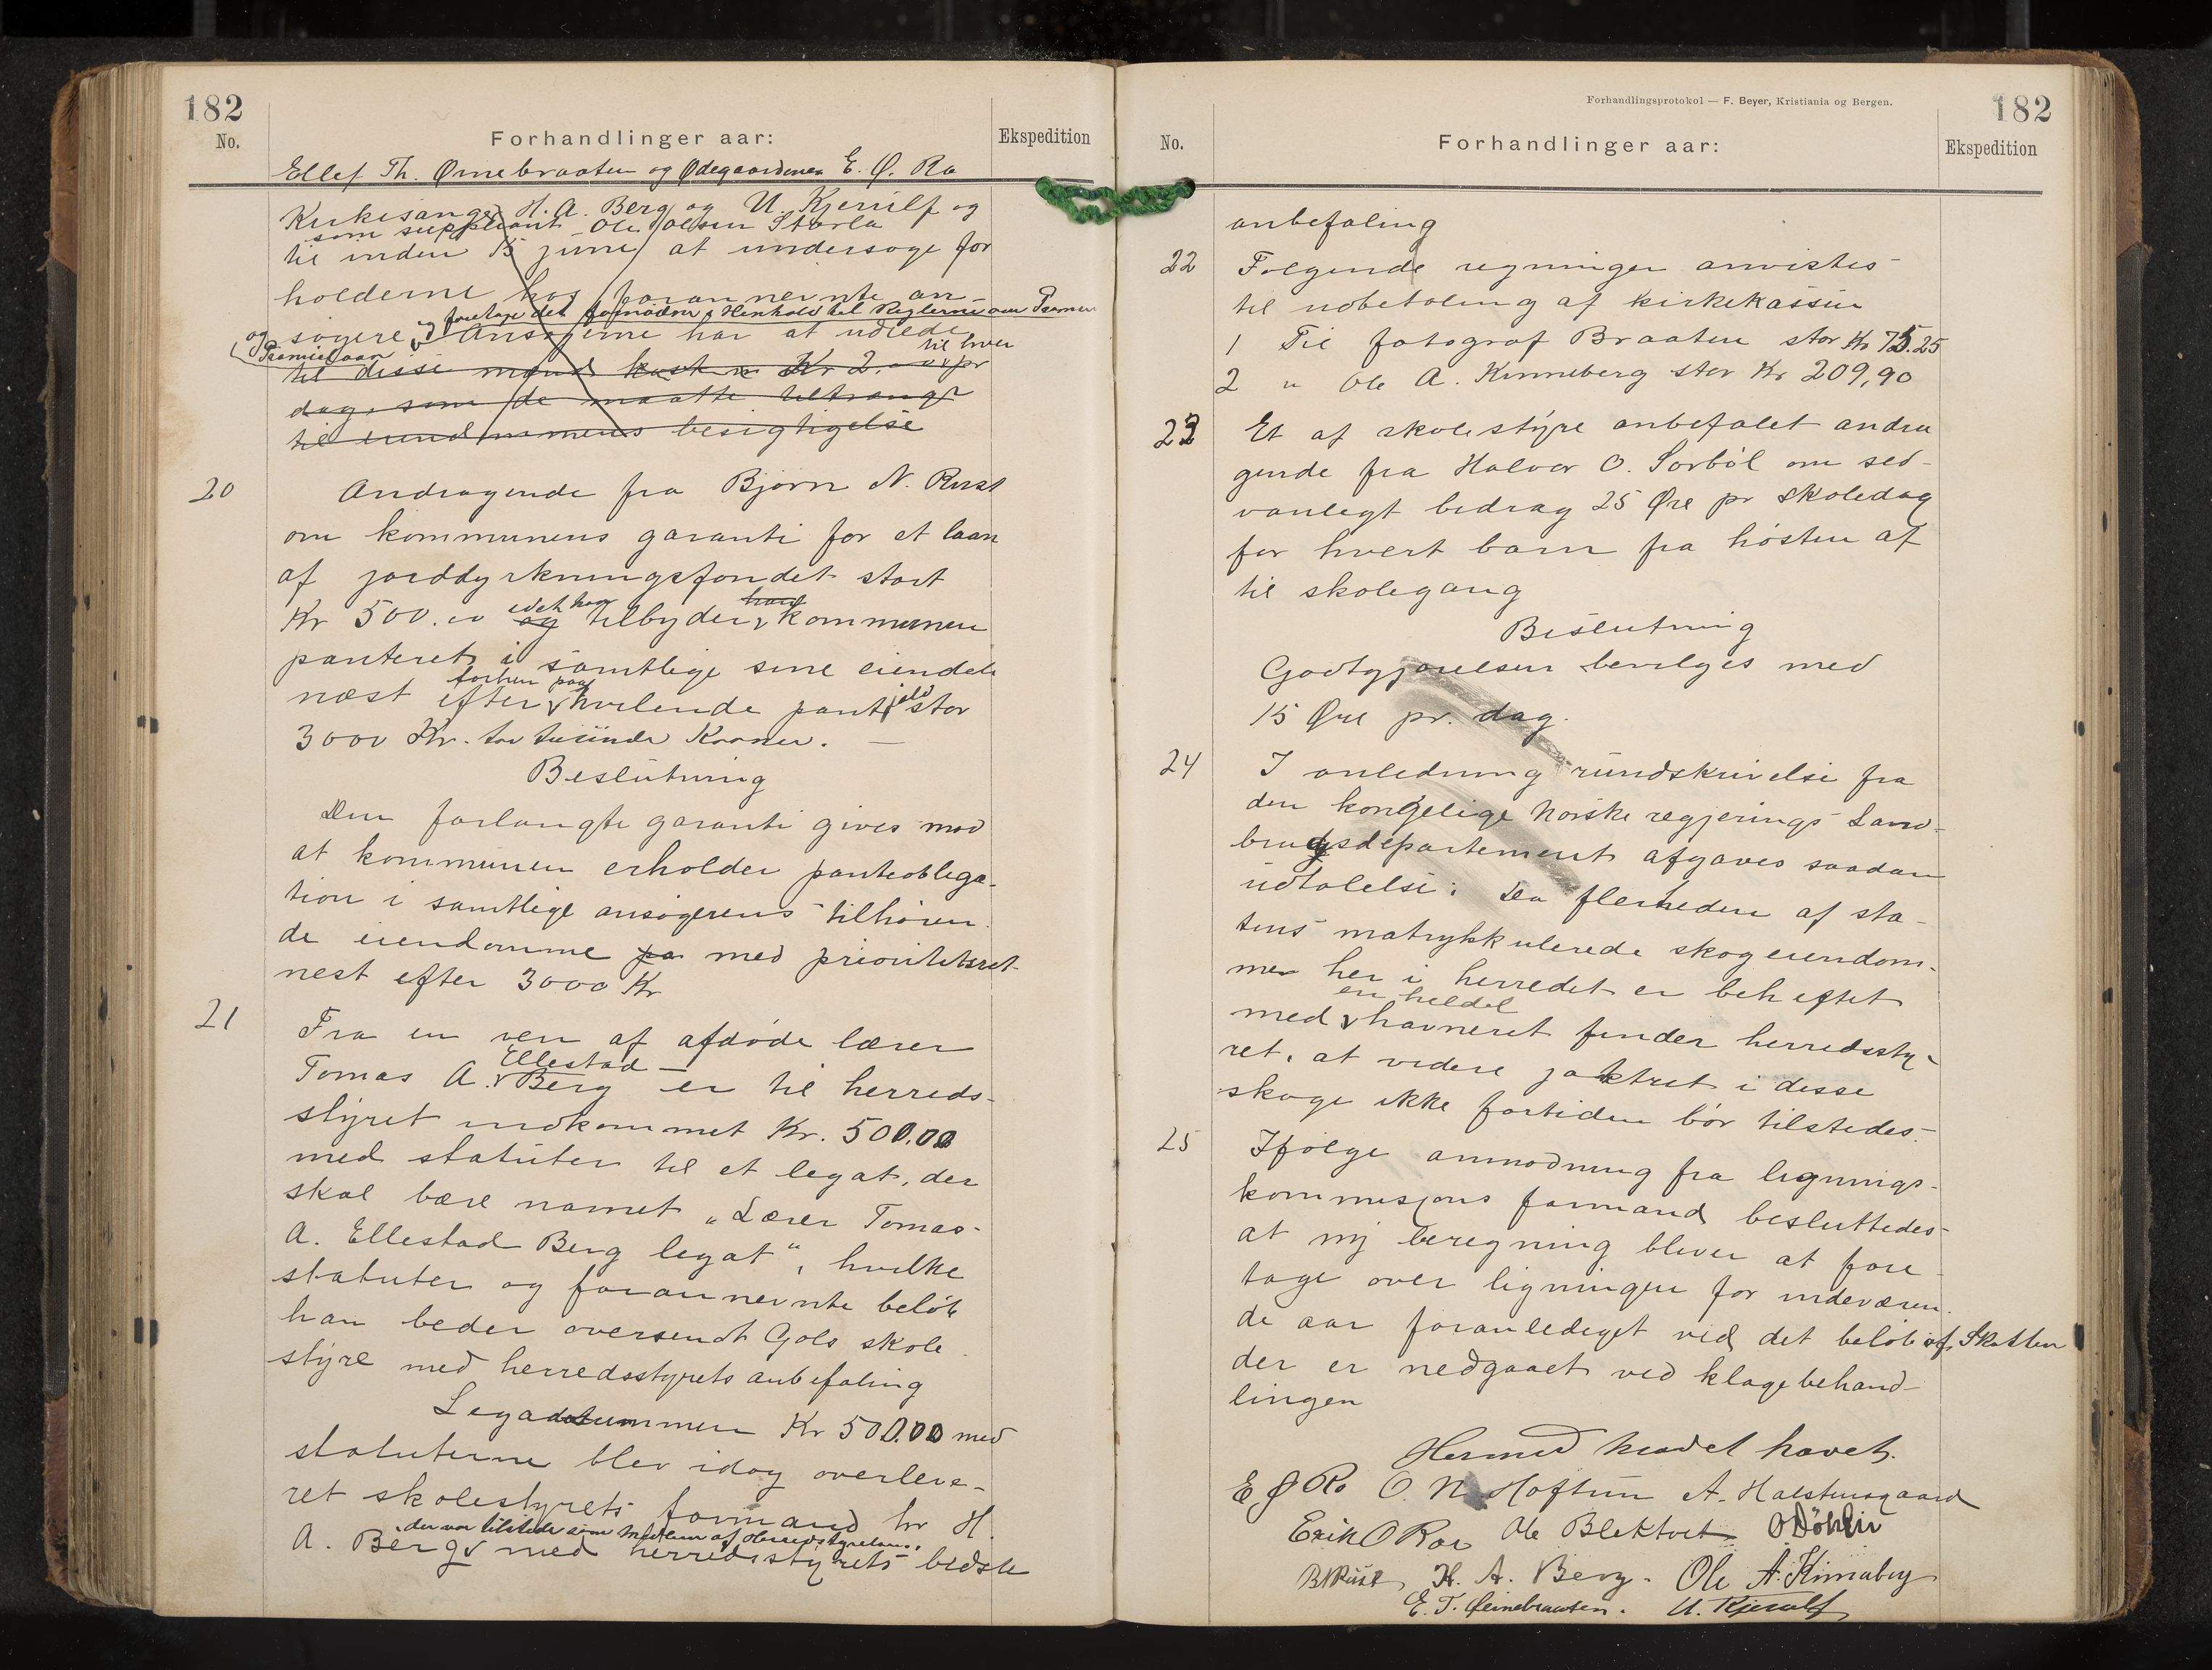 182
No.
Forhandlinger aar:
Ekspedition
Ellef Th. Ørnebraaten og Ødegaardenen E. Ø. Ro
Kirkesanger H. A. Berg og U. Kjerulf og
som suppleant Ole Olsen Storla
til inden 15 juni at undersøge for
holderne hos forannevnte an-
og foretage det fornødne i Henhold til Reglerne om Præmie
søgere og Ansøgerne har at udrede
Præmielaan
til hver
til disse mænd Kr 2.00 pr
dag, som de maatte tiltrænge
til eiendommens besigtigelse
20
Andragende fra Bjørn N. Rust
om kommunens garanti for et laan
af jorddyrkningsfondet stort
idet han
Kr 500.00 og tilbyder kommunen
panteret i samtlige sine eiendele
forhen paa
næst efter hvilende pantgjeld stor
3000 Kr. tre tusinde Kroner. —
Beslutning
Den forlangte garanti gives mod
at kommunen erholder panteobliga-
tion i samtlige ansøgerens tilhøren-
de eiendomme pa med prioritetsret
nest efter 3000 Kr
21
Fra en ven af afdøde lærer
Ellestad
Tomas A. Berg er til herreds-
styret indkommet Kr. 500.00
med statuter til et legat, der
skal bære navnet „Lærer Tomas
A. Ellestad Berg legat“, hvilke
statuter og forannevnte beløb
han beder oversendt Gols skole
styre med herredsstyrets anbefaling
Legatsummen Kr 500.00 med
statuterne blev idag overleve-
ret skolestyrets formand hr H.
der var tilstede som Medlem af Herredsstyrelsen,
A. Berg med herredsstyrets bedste
Forhandlingsprotokol — F. Beyer, Kristiania og Bergen.
182
No.
Forhandlinger aar:
Ekspedition
anbefaling
22
Følgende regninger anvistes
til udbetaling af kirkekassen
1 Til fotograf Braaten stor Kr 75.25
2 " Ole A. Kinneberg stor Kr 209,90
23
Et af skolestyre anbefalet andra
gende fra Halvor O. Sorbøl om sed-
vanlegt bidrag 25 Øre pr skoledag
for hvert barn fra høsten af
til skolegang
Beslutning
Godtgjørelsen bevilges med
15 Øre pr. dag.
24
I anledning rundskrivelse fra
den kongelige Norske regjerings Land-
brugsdepartement afgaves saadan
udtalelse: Da flerheden af sta-
tens matrykkulerede skogeiendom-
mer her i herredet er beheftet
en heldel
med havneret finder herredssty-
ret, at videre jaktret i disse
skoge ikke fortiden bør tilstedes.
25
Ifølge anmodning fra lignings-
kommisjons formand besluttedes
at ny beregning bliver at fore
tage over ligningen for indeværen-
de aar foranlediget ved det beløb af Skatten
der er nedgaaet ved klagebehand-
lingen
Hermed mødet hævet.
E Ø Ro O. N. Hoftun A. Halstensgaard
Erik O Roe Ole Blektvet O Døhlin
B N Rust, H. A. Berg. Ole A. Kinneberg
E. T. Ørnebraaten. U. Kjerulf